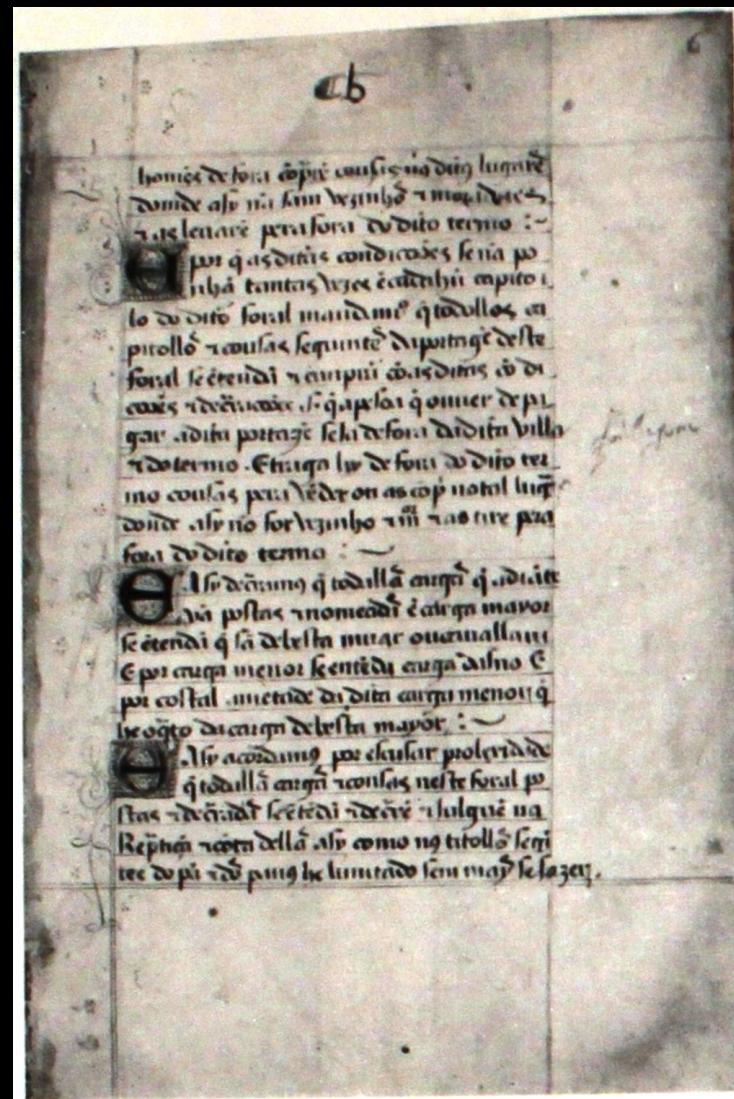 6
homẽs de fora cõprẽ cousas nos ditos lugarẽs
donde asy nã sam vezinhos ⁊ moradores
⁊ as leuarẽ pera fora do dito termo :~
E por q̃ as ditas condições seria po
nhã tantas vezes ẽ cada hũ capito
lo do dito foral mandamos q̃ todollos ca
pitollos ⁊ cousas seguintes da portagẽ deste
foral se ẽtendã ⁊ cumprã cõ as ditas cõ di
cões ⁊ decrarações .s. q̃ a pesoa q̃ ouuer de pa
gar a dita portagẽ seia de fora da dita villa
⁊ do termo . E traga hy de fora do dito ter
mo cousas pera vẽder ou as cõp notal lugar
donde asy nõ for vezinho ⁊ ⁊ as tire pera
fora do dito termo : ~
E Asy decraramos q̃ todallas cargas q̃ adiãte
vã postas ⁊ nomeadas ẽ carga mayor
se ẽtendã q̃ sã de besta muar ou cauallar
E por carga menor se entẽda carga dasno E
por costal ametade da dita carga menor q̃
he o q̃to da carga de besta mayor : ~
E Asy acordamos por escusar prolexidade
q̃ todallas cargas ⁊ cousas neste foral po
stas ⁊ decradas se ẽtẽdã ⁊ decrẽ ⁊ Julguẽ na
Repartiçã ⁊ cõta dellas asy como nos titollos segĩ
tes do pã ⁊ dos panos he limitado sem mays se fazer